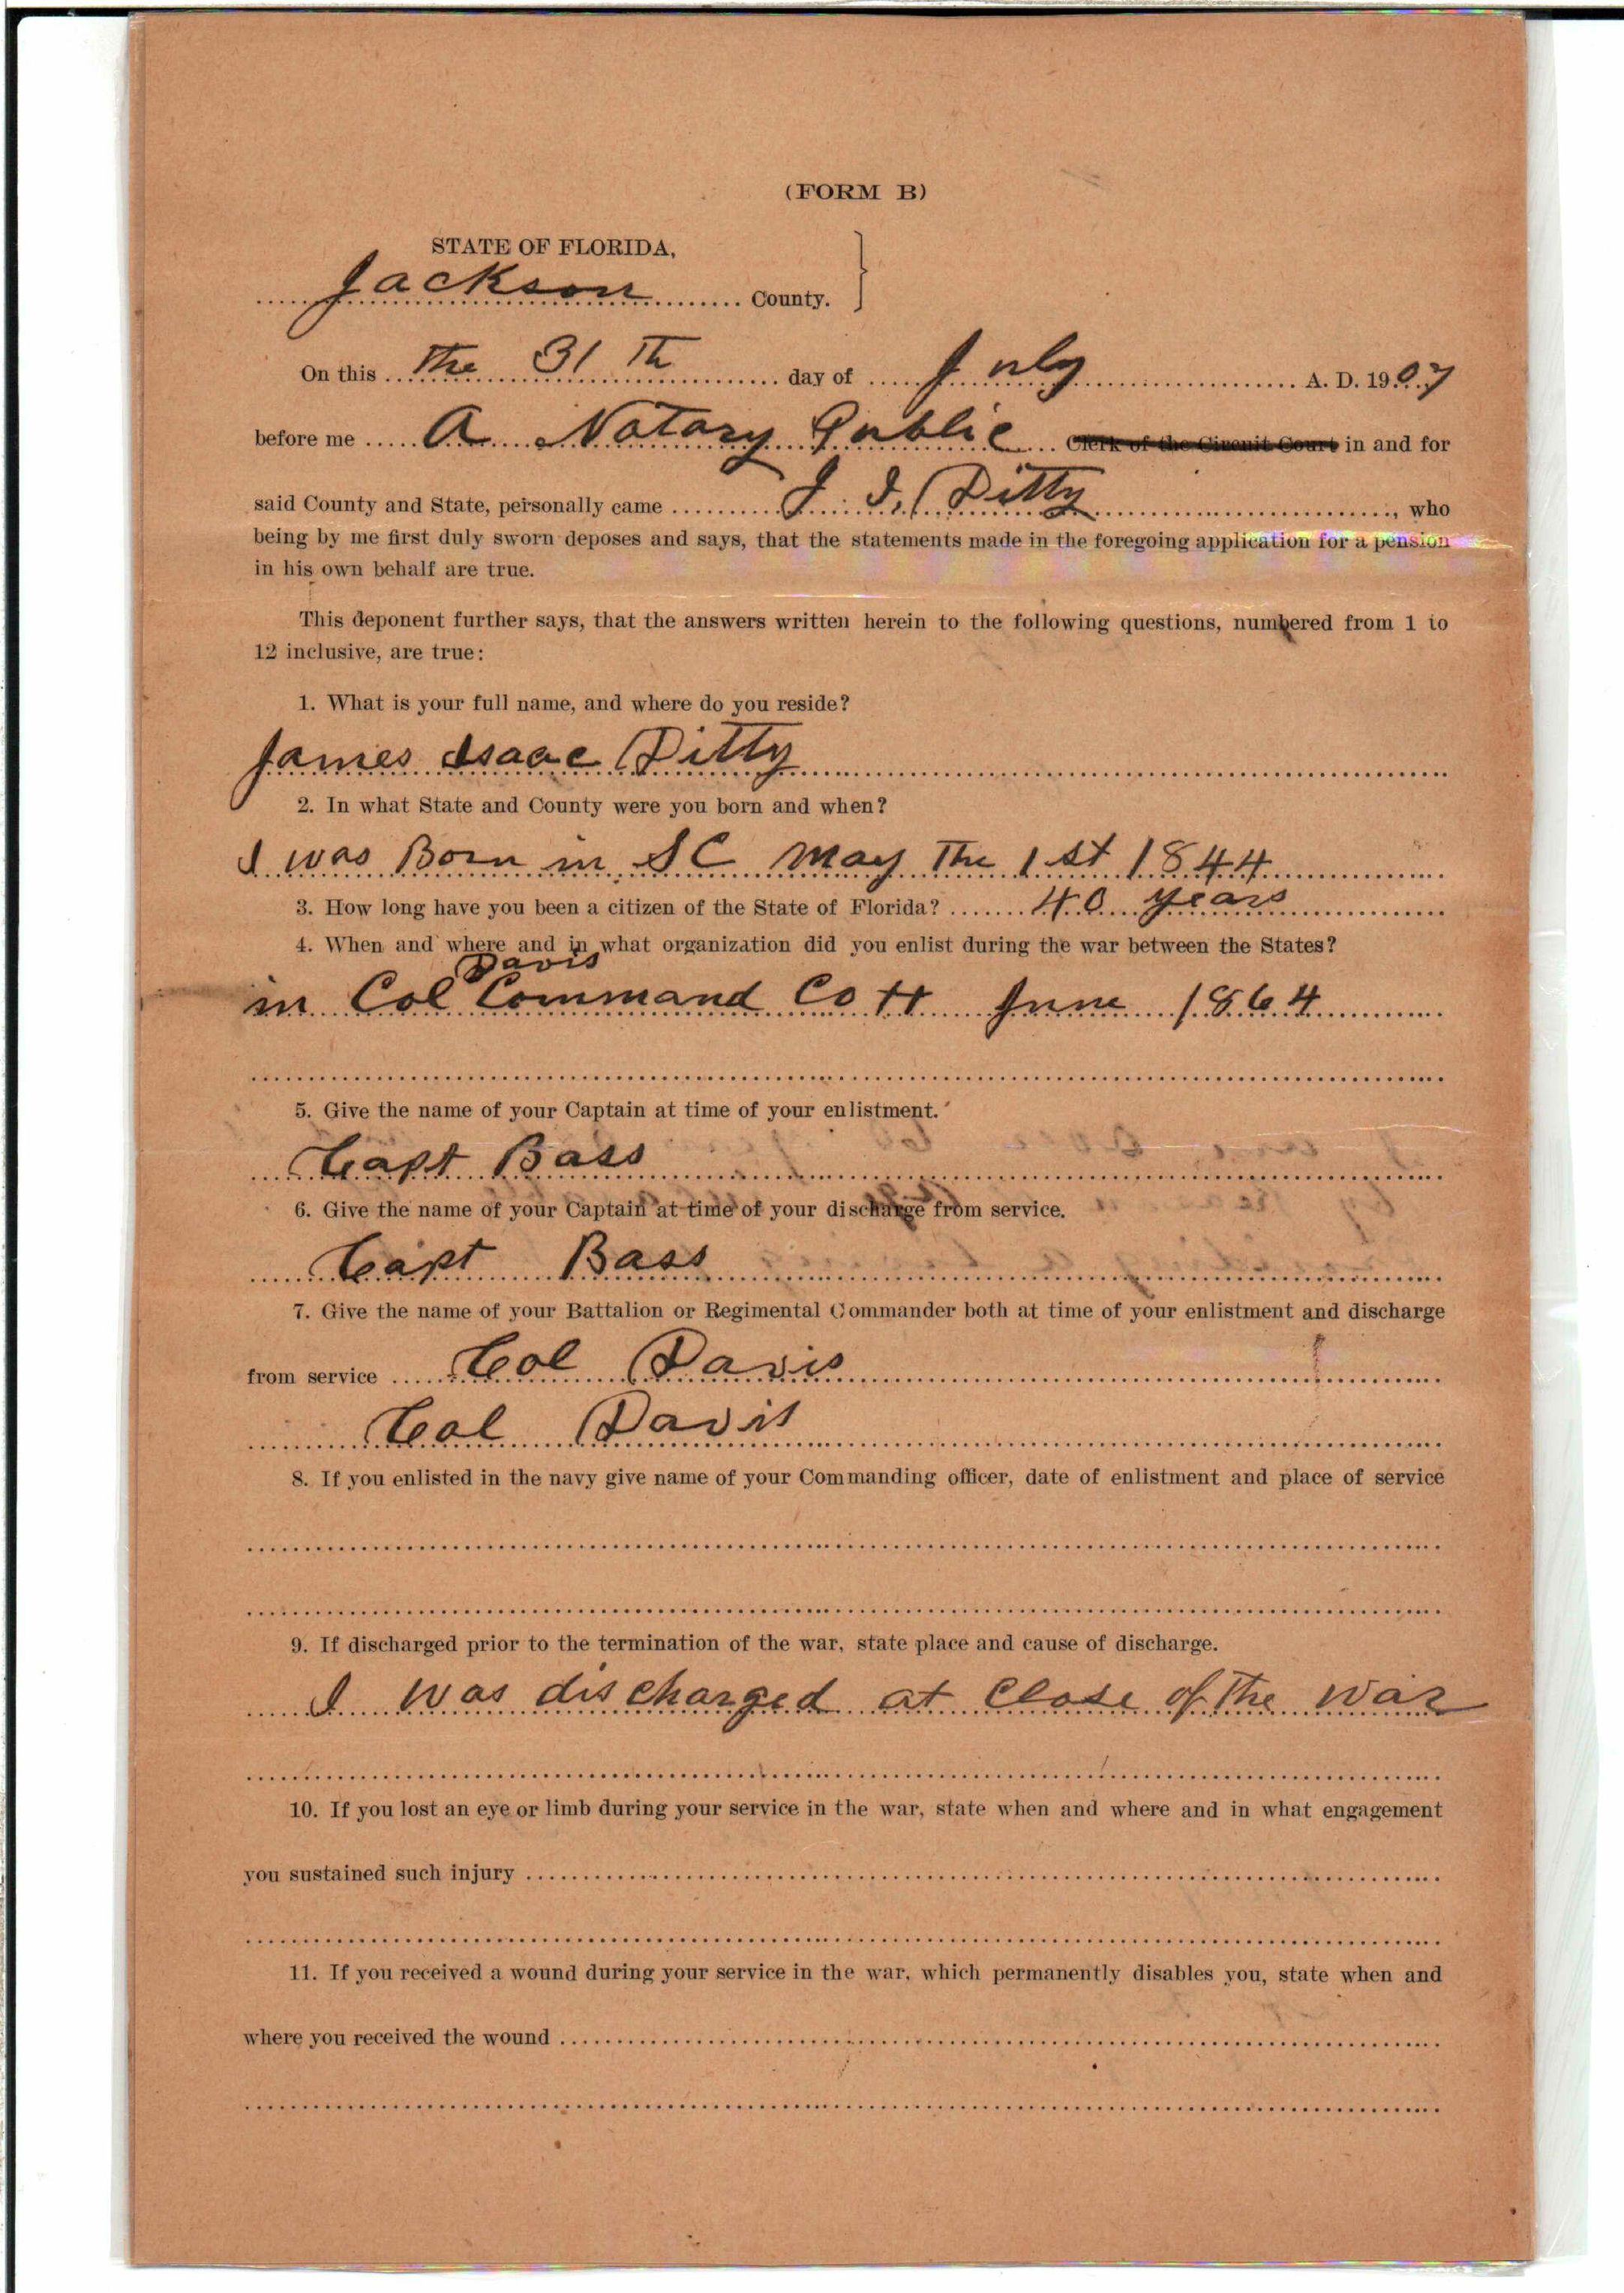 (FORM B)
STATE OF FLORIDA,
Jackson County.
On this the 31 Th day of July A. D. 1907
before me A Notary Public Clerk of the Circuit Court in and for
said County and State, personally came J. I. Pitty, who
being by me first duly sworn deposes and says, that the statements made in the foregoing application for a pension
in his own behalf are true.
This deponent further says, that the answers written herein to the following questions, numbered from 1 to
12 inclusive, are true:
1. What is your full name, and where do you reside?
James Isaac Pitty
2. In what State and County were you born and when?
I was Born in SC May The 1st 1844
3. How long have you been a citizen of the State of Florida? 40 years
4. When and where and in what organization did you enlist during the war between the States?
Davis
in Col Command Co H June 1864
5. Give the name of your Captain at time of your enlistment.
Capt Bass
6. Give the name of your Captain at time of your discharge from service.
Capt Bass
7. Give the name of your Battalion or Regimental Commander both at time of your enlistment and discharge
from service Col Davis
Col Davis
8. If you enlisted in the navy give name of your Commanding officer, date of enlistment and place of service
9. If discharged prior to the termination of the war, state place and cause of discharge.
I was discharged at Close of The War
10. If you lost an eye or limb during your service in the war, state when and where and in what engagement
you sustained such injury
11. If you received a wound during your service in the war, which permanently disables you, state when and
where you received the wound